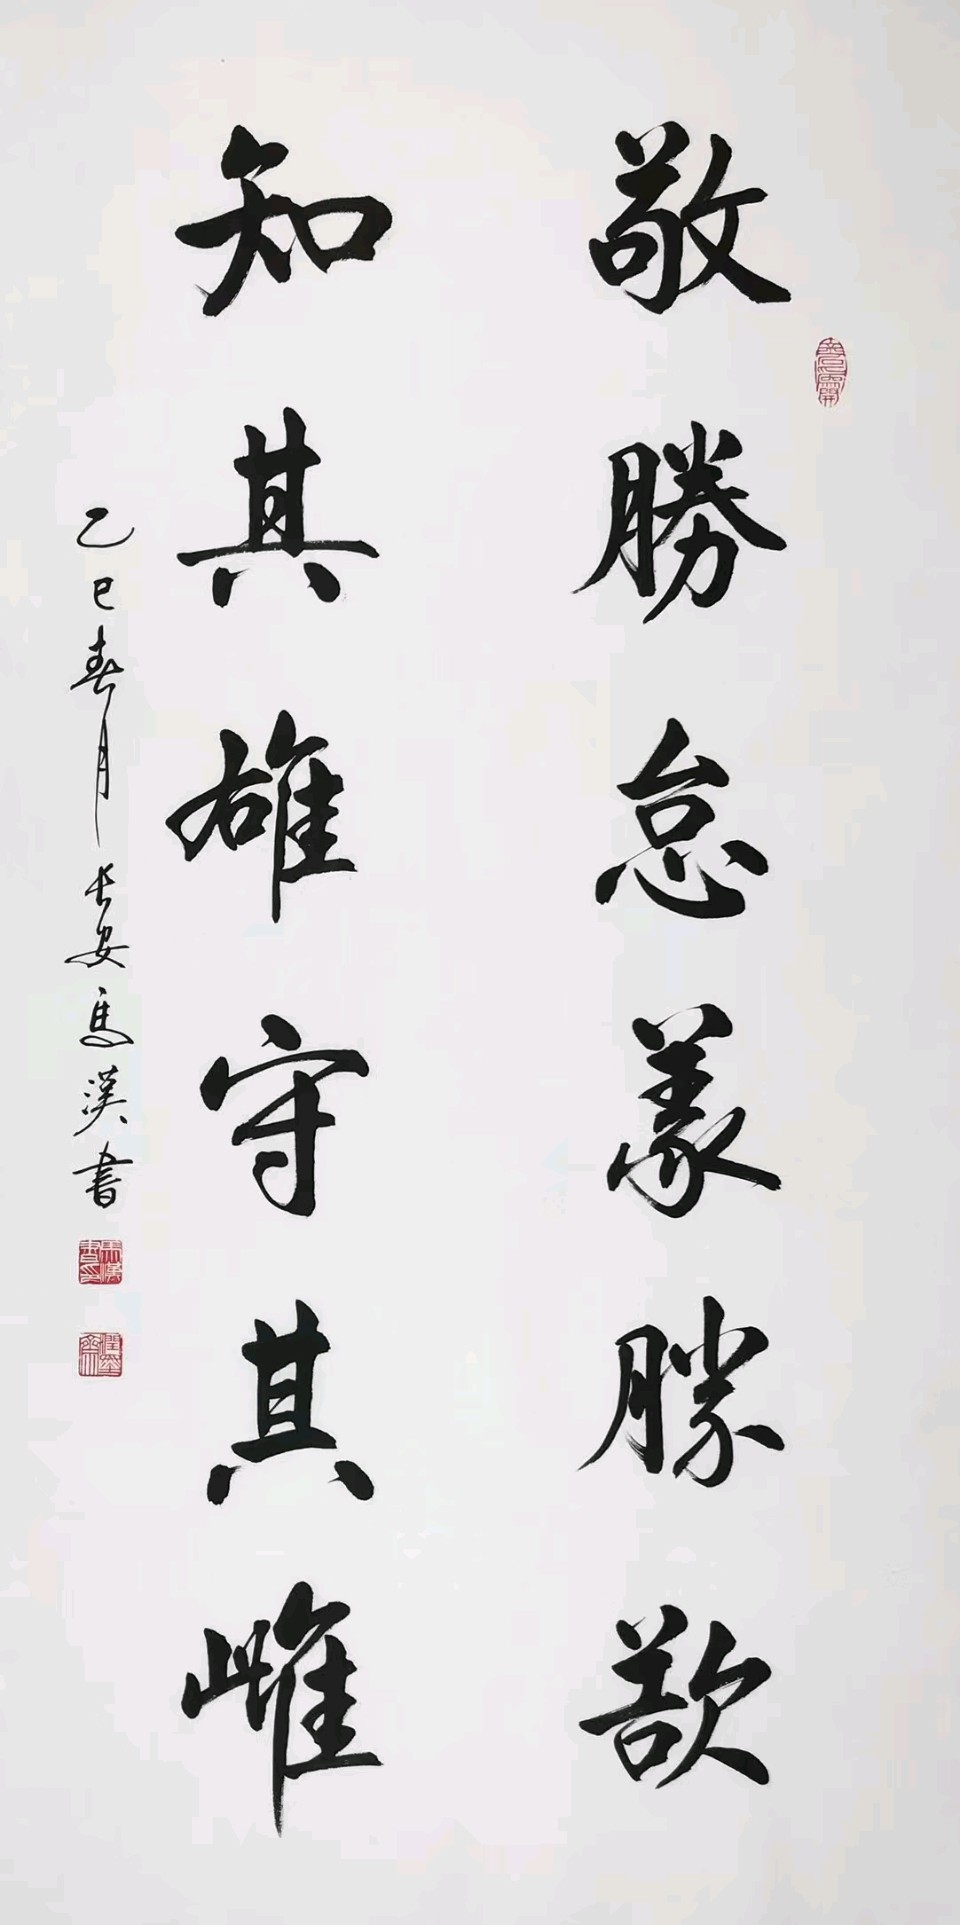 敬勝怠義勝欲
知其雄守其雌
乙巳春月長安馬漢書